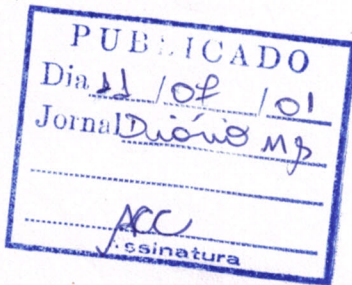 PUBLICADO
Dia 11 / 07 / 01
Jornal Diário MS
ACC
Assinatura